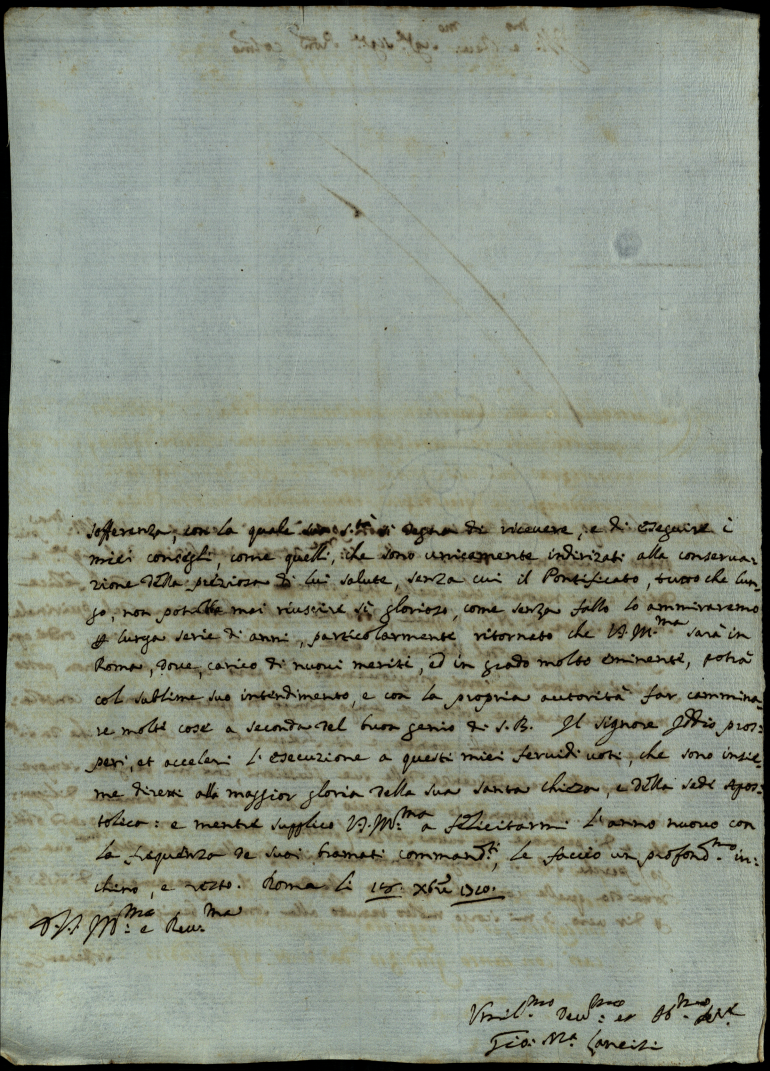 sofferenza, con la quale sua S.tà si degna di ricevere, e di eseguire i
miei consigli, come quelli, che sono unicamente indirizati alla conserva-
zione della preziosa di lui salute, senza cui il Pontificato, tutto che lun-
go, non potrebbe mai riuscire sì glorioso, come senza fallo lo ammiraremo
lunga serie di anni, particolarmente ritornato che V.S. Ill.ma sarà in
Roma, dove, carico di nuovi meriti, ed in grado molto eminente, potrà
col sublime suo intendimento, e con la propria autorità far cammina-
re molte cose a seconda del buon genio di S.B. Il Signore Iddio pros-
peri, et acceleri l'esecuzione a questi miei fervidi voti, che sono insie-
me diretti alla maggior gloria della sua santa chiesa, e della sede Apos-
tolica: e mentre supplico V.S. Ill.ma a felicitarmi l'anno nuovo con
la frequenza de suoi bramati command.ti, le faccio un profond.mo in-
chino, e resto. Roma li Xbre 1710.
D.V.S. Ill.ma e Rev.ma
Umil.mo Dev.mo et Obb.mo
Gio: M.a Lancisi